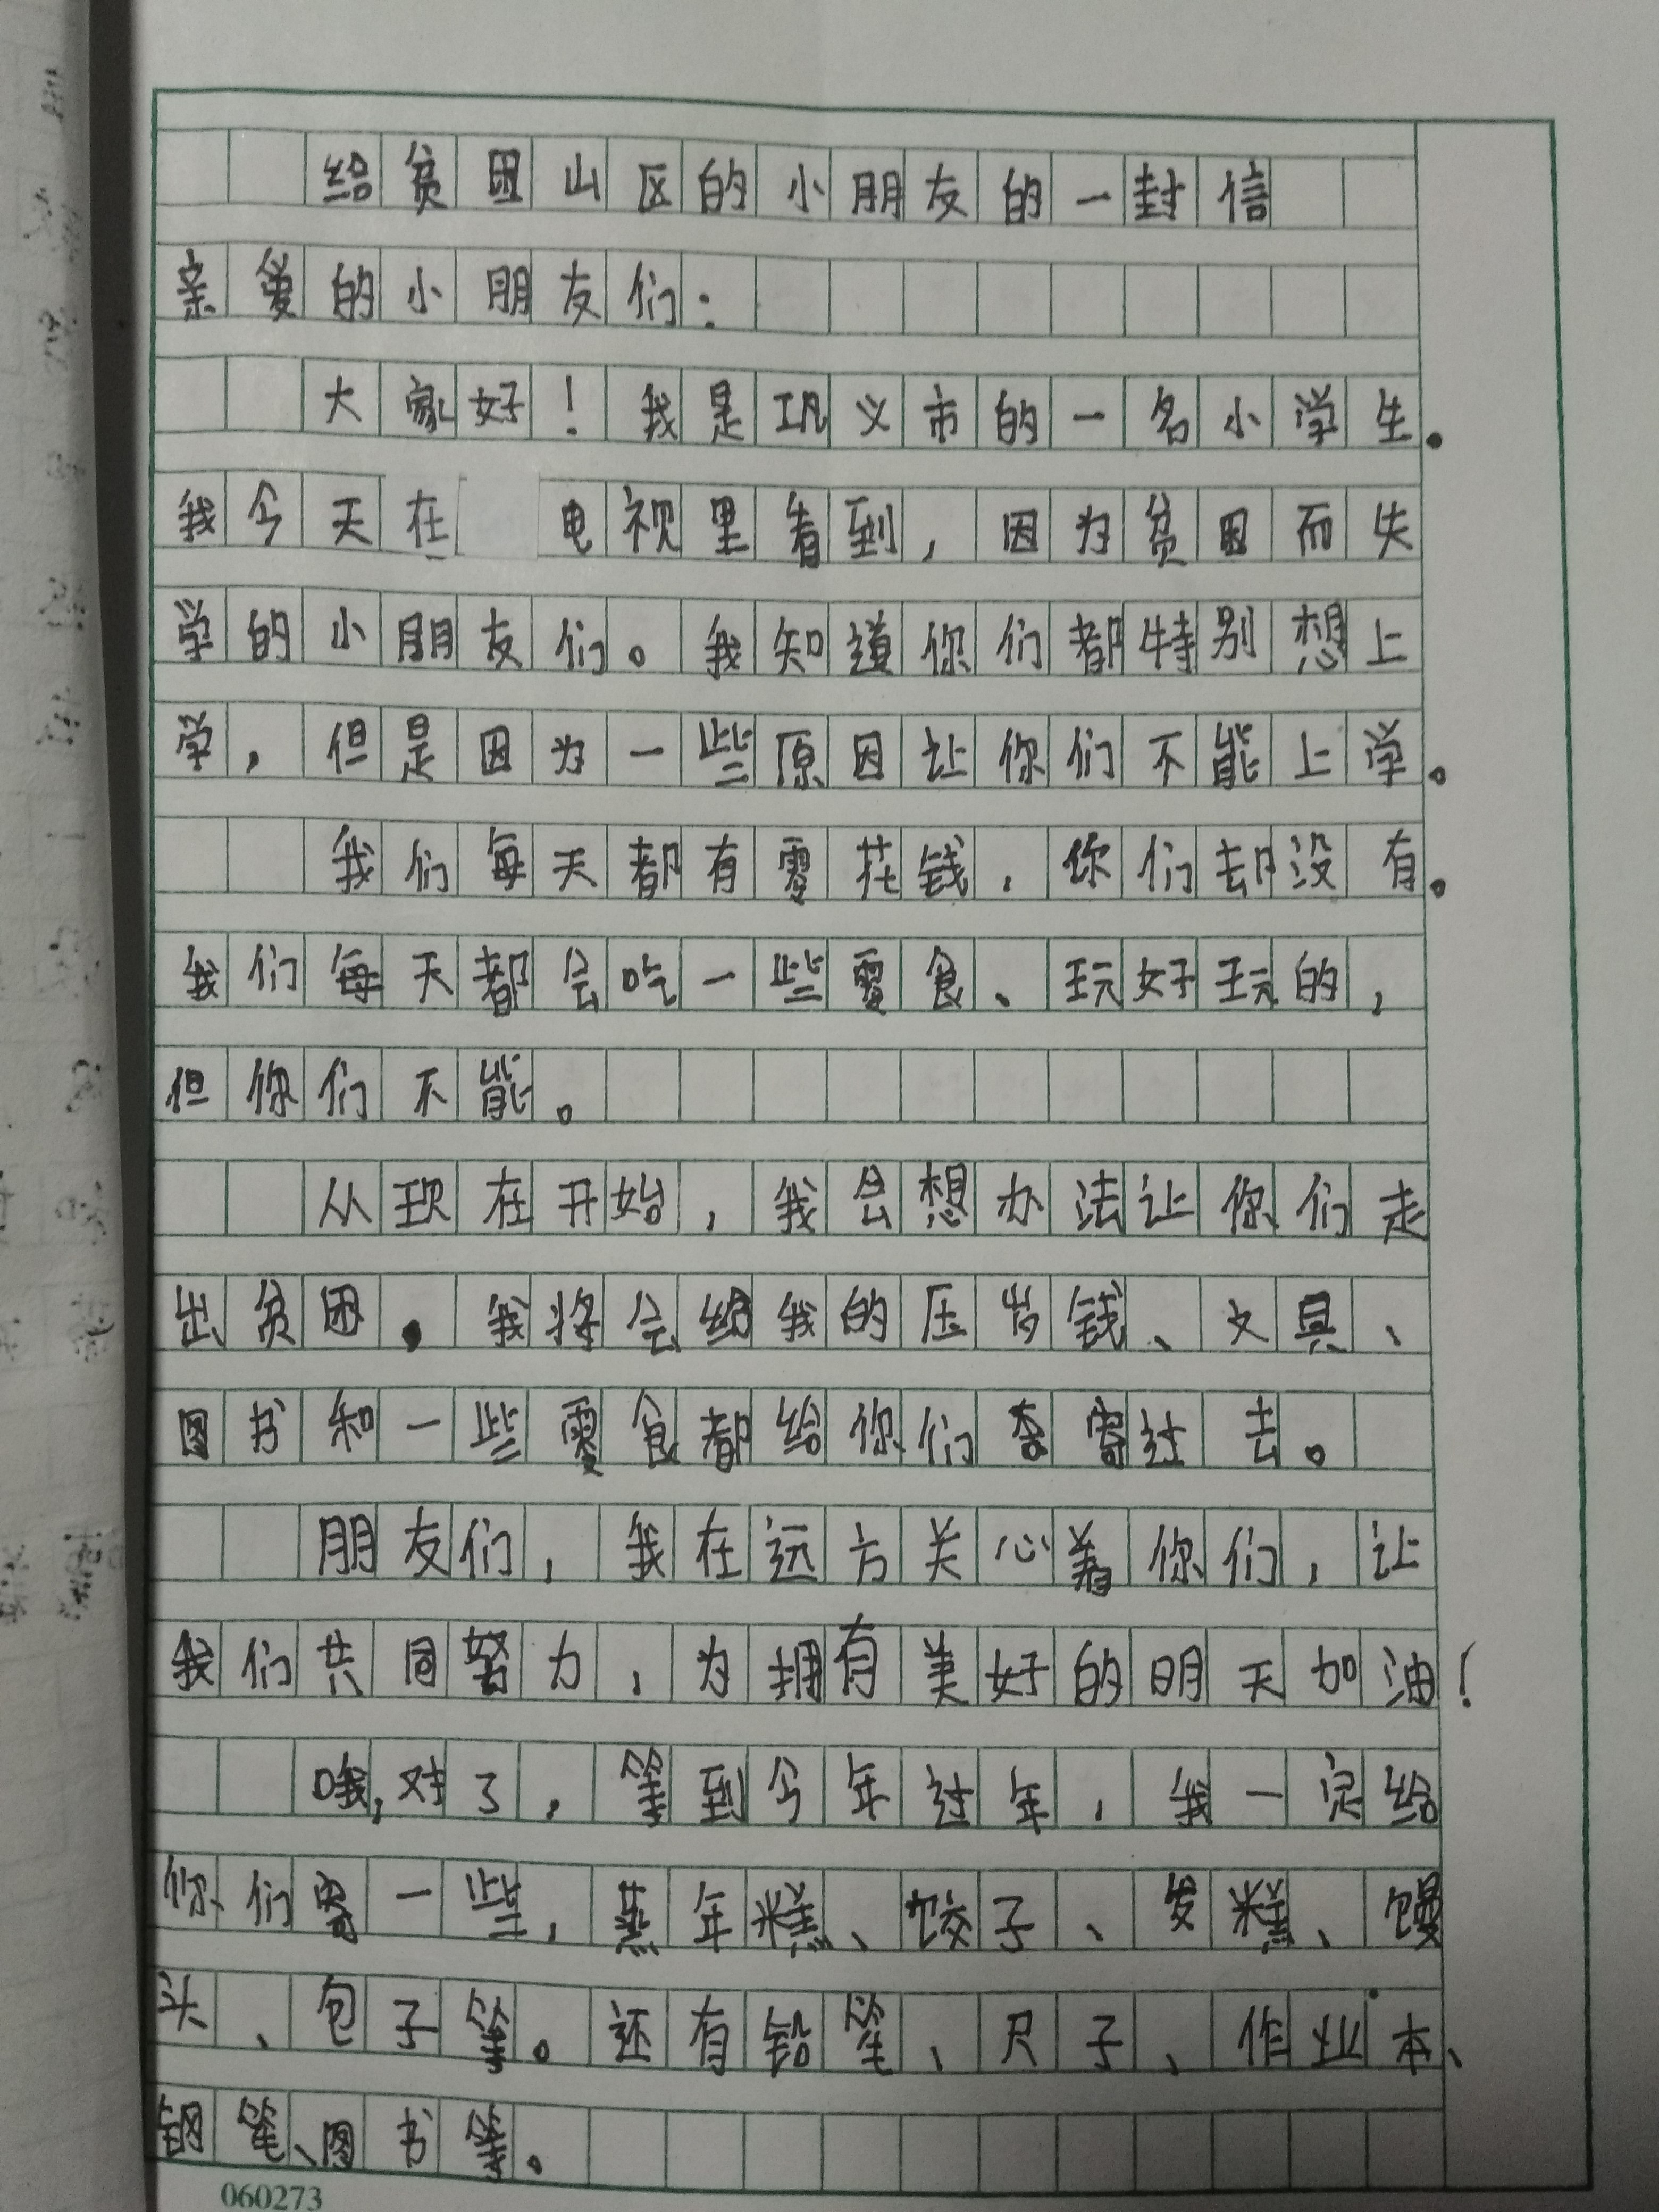 给贫困山区的小朋友的一封信
亲爱的小朋友们：
大家好！我是巩义市的一名小学生。
我今天在电视里看到，因为贫困而失
学的小朋友们。我知道你们都特别想上
学，但是因为一些原因让你们不能上学。
我们每天都有零花钱，你们却没有。
我们每天都会吃一些零食、玩好玩的，
但你们不能。
从现在开始，我会想办法让你们走
出贫困。我将会给我的压岁钱、文具、
图书和一些零食都给你们寄过去。
朋友们，我在远方关心着你们，让
我们共同努力，为拥有美好的明天加油！
哦，对了，等到今年过年，我一定给
你们寄一些，蒸年糕、饺子、发糕、馒
头、包子等。还有铅笔、尺子、作业本、
钢笔、图书等。
060273